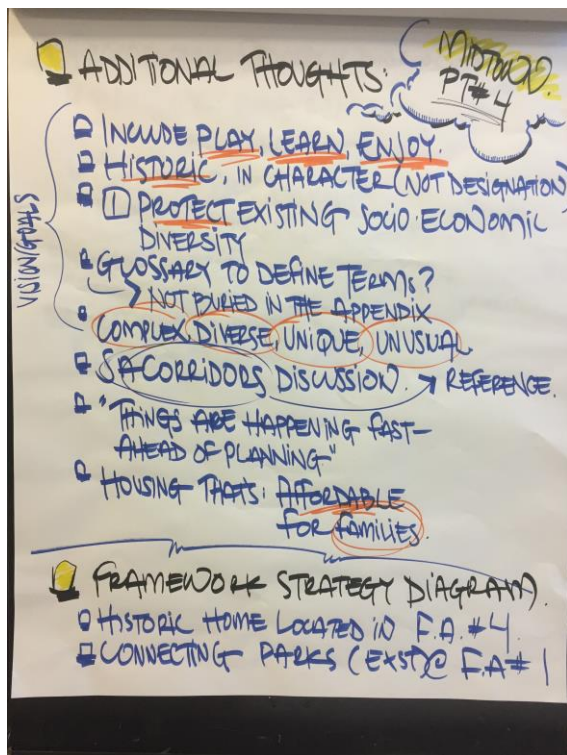 ADDITIONAL THOUGHTS:
MIDTOWN
PT#4
INCLUDE PLAY, LEARN, ENJOY.
HISTORIC, IN CHARACTER (NOT DESIGNATION)
PROTECT EXISTING SOCIO-ECONOMIC
DIVERSITY
GLOSSARY TO DEFINE TERMS?
NOT BURIED IN THE APPENDIX
COMPLEX, DIVERSE, UNIQUE, UNUSUAL
SA CORRIDORS DISCUSSION. → REFERENCE.
"THINGS ARE HAPPENING FAST-
AHEAD OF PLANNING"
HOUSING THAT'S: AFFORDABLE
FOR FAMILIES.
FRAMEWORK STRATEGY DIAGRAM.
HISTORIC HOME LOCATED IN F.A. #4.
CONNECTING PARKS (EXST)@ F.A# 1